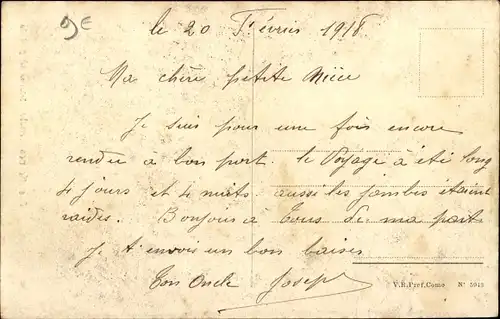 9E
le 20 Février 1918
Ma chère petite Nièce
Je suis pour une fois encore
rendu a bon port. le Voyage à été long
4 jours et 4 nuits aussi les jambes étaient
raides. Bonjour a Tous de ma part
Je t'envois un bon baiser
Ton Oncle Joseph
V.R.Prof.Como N° 5945